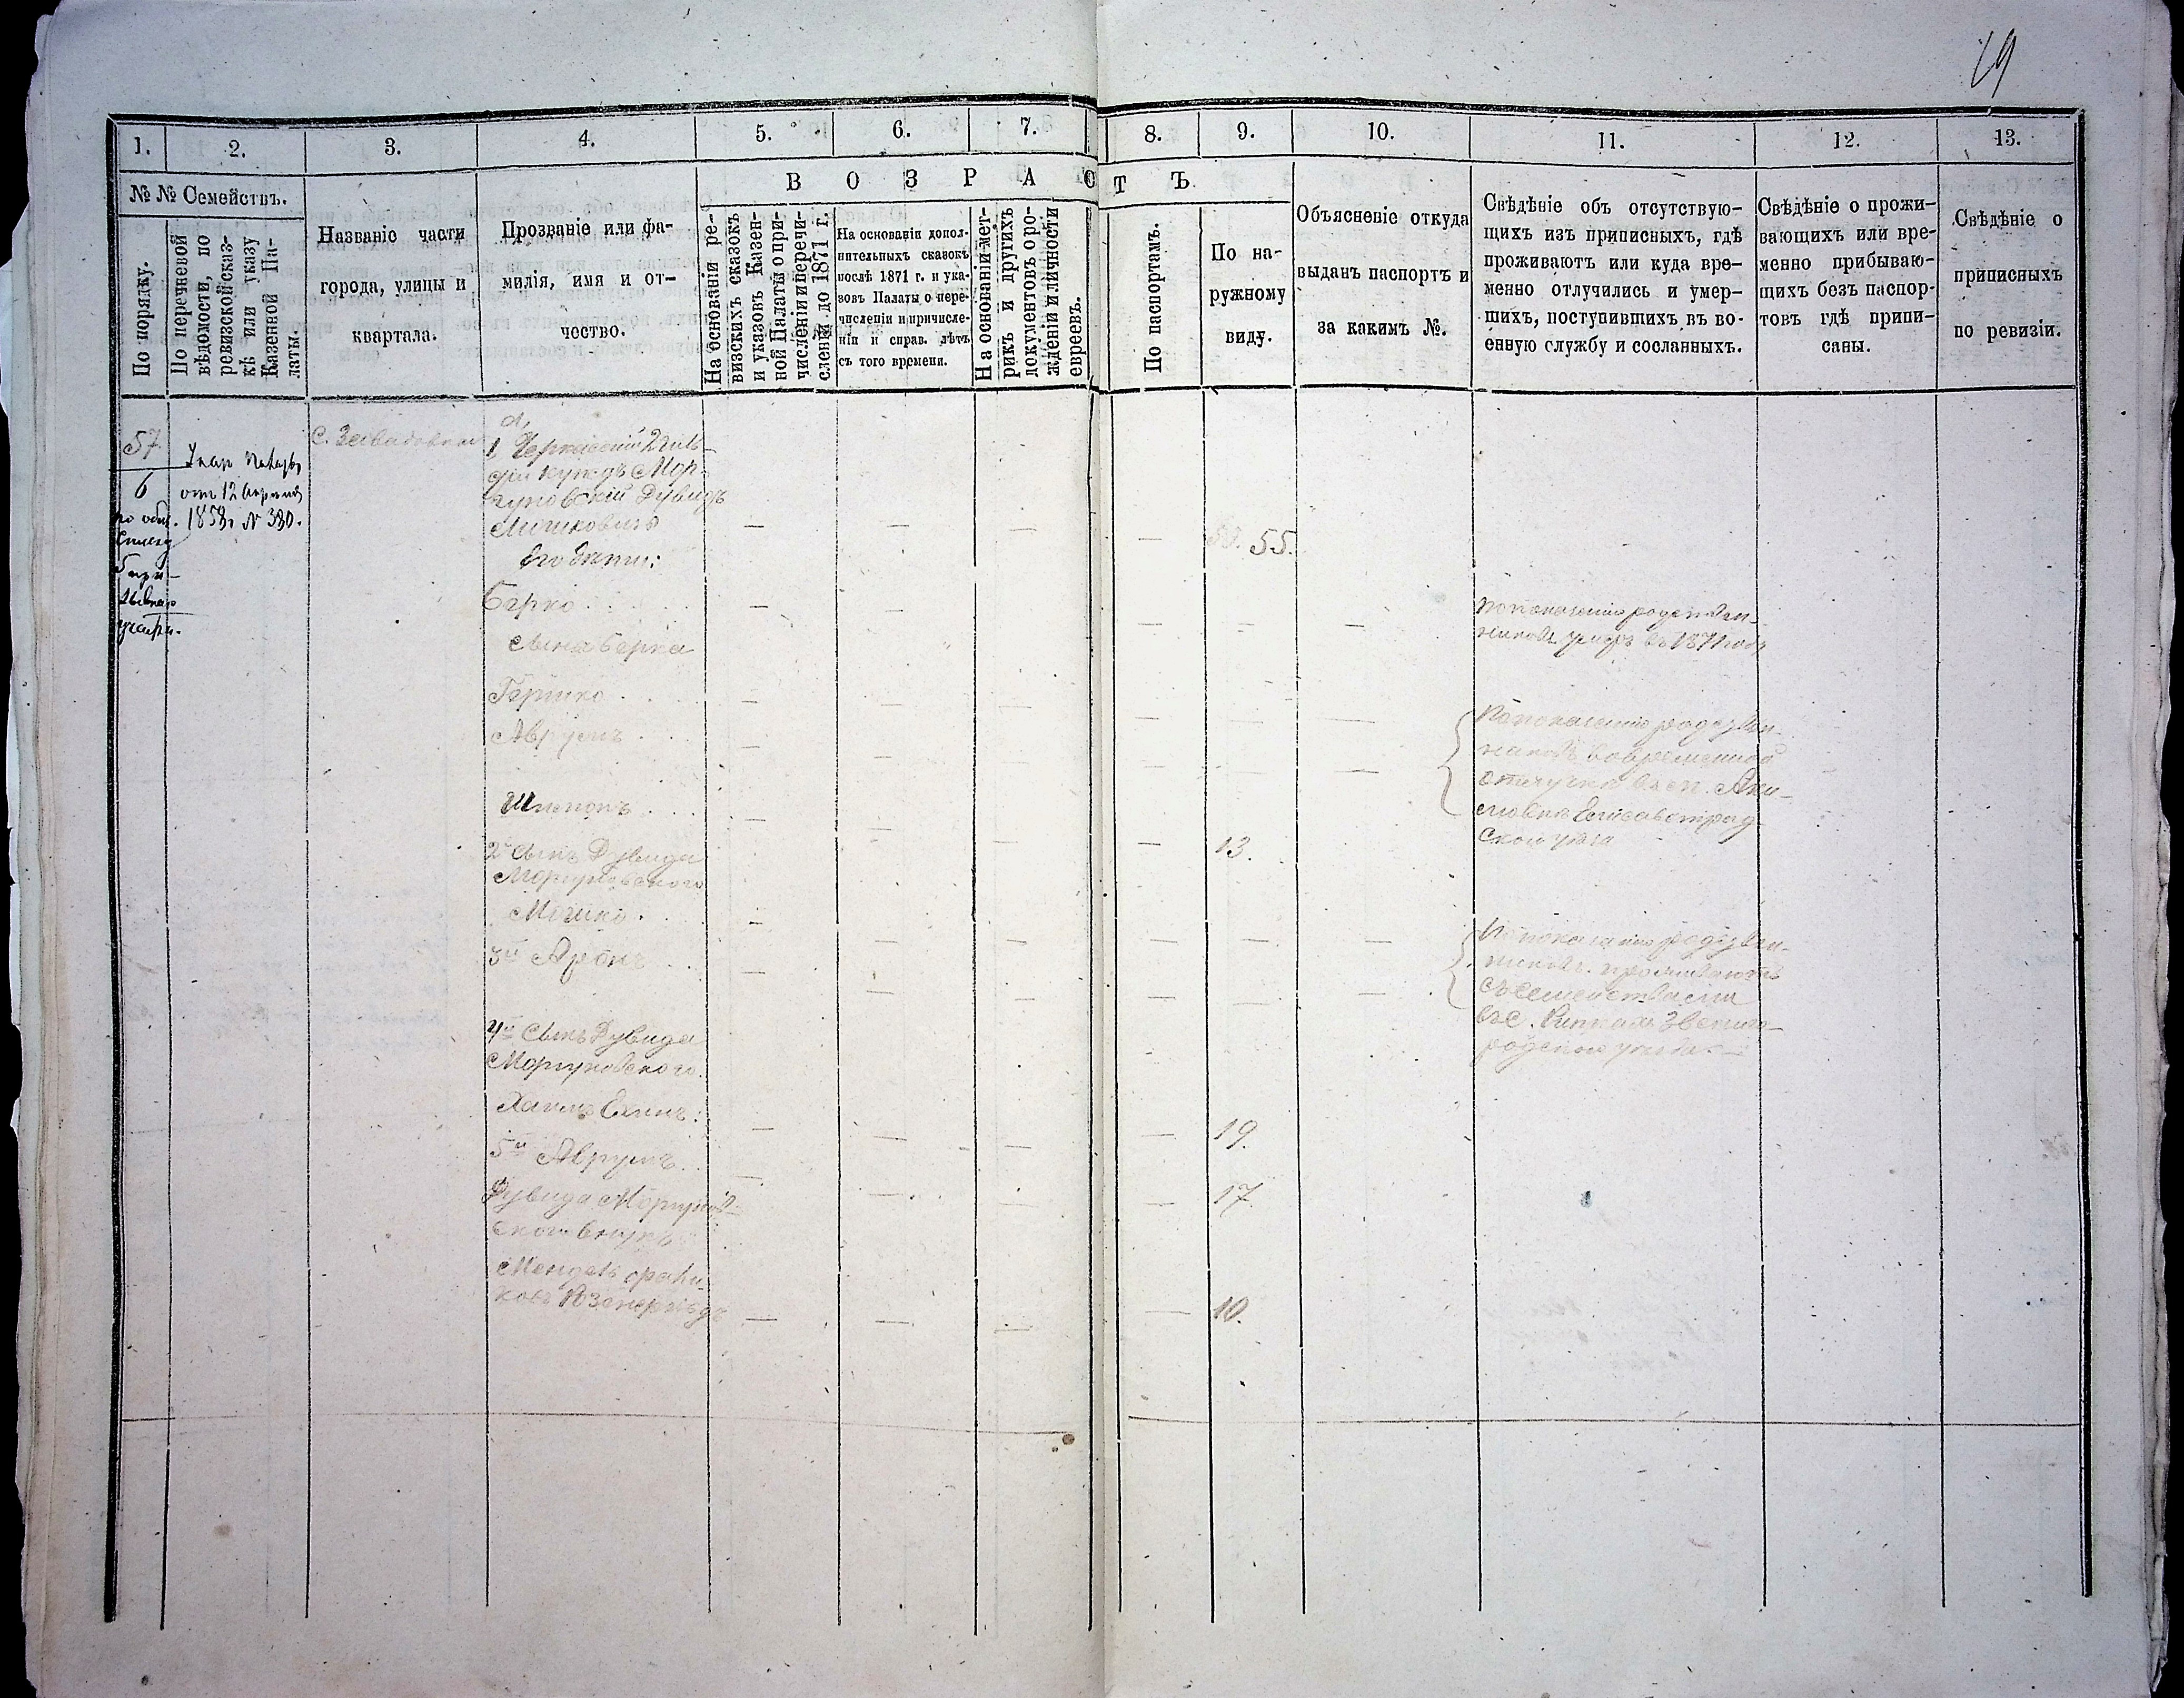 19
1.
2.
3.
4.
5.
6.
7.
8.
9.
10.
11.
12.
13.
№ № Семействъ.
В О З Р А С Т Ъ.
По порядку.
По перечневой
вѣдомости, по
ревизской сказ-
кѣ или указу
Казенной Па-
латы.
Названіе части
города, улицы и
квартала.
Прозваніе или фа-
милія, имя и от-
чество.
На основаніи ре-
визскихъ сказокъ
и указовъ Казен-
ной Палаты о при-
численіи и перечи-
сленіи до 1871 г.
На основаніи допол-
нительныхъ сказокъ
послѣ 1871 г. и ука-
зовъ Палаты о пере-
численіи и причисле-
ніи и справ. лѣтъ
съ того времени.
На основаніи мет-
рикъ и другихъ
документовъ о ро-
жденіи и личности
евреевъ.
По паспортамъ.
По на-
ружному
виду.
Объясненіе откуда
выданъ паспортъ и
за какимъ №.
Свѣдѣніе объ отсутствую-
щихъ изъ приписныхъ, гдѣ
проживаютъ или куда вре-
менно отлучились и умер-
шихъ, поступившихъ въ во-
енную службу и сосланныхъ.
Свѣдѣніе о прожи-
вающихъ или вре-
менно прибываю-
щихъ безъ паспор-
товъ гдѣ припи-
саны.
Свѣдѣніе о
приписныхъ
по ревизіи.
57
6
отъ 12 Апрѣля
№ 380.
С. Завадовка
1, Черкасскій 2 гиль-
діи купецъ Мор-
гуновскій Дувидъ
Мошковичъ
55.
Его дѣти:
Берко
По показанію родствен-
никовъ умеръ въ 1871 году
сына Берка
Гершко
Аврумъ
По показанію родствен-
никовъ во временной
отлучкѣ въ
Елисаветград-
скаго уѣзда
13.
2й сынъ Дувида
Моргуновскаго
Мошко
3й Аронъ
По показанію родствен-
никовъ проживаютъ
съ семействами
въ с. Звениго-
родскаго уѣзда
4й Сынъ Дувида
Моргуновскаго
Хаимъ
19.
5й Аврумъ
17
Дувида Моргунов-
скаго внукъ
Мендель
10.